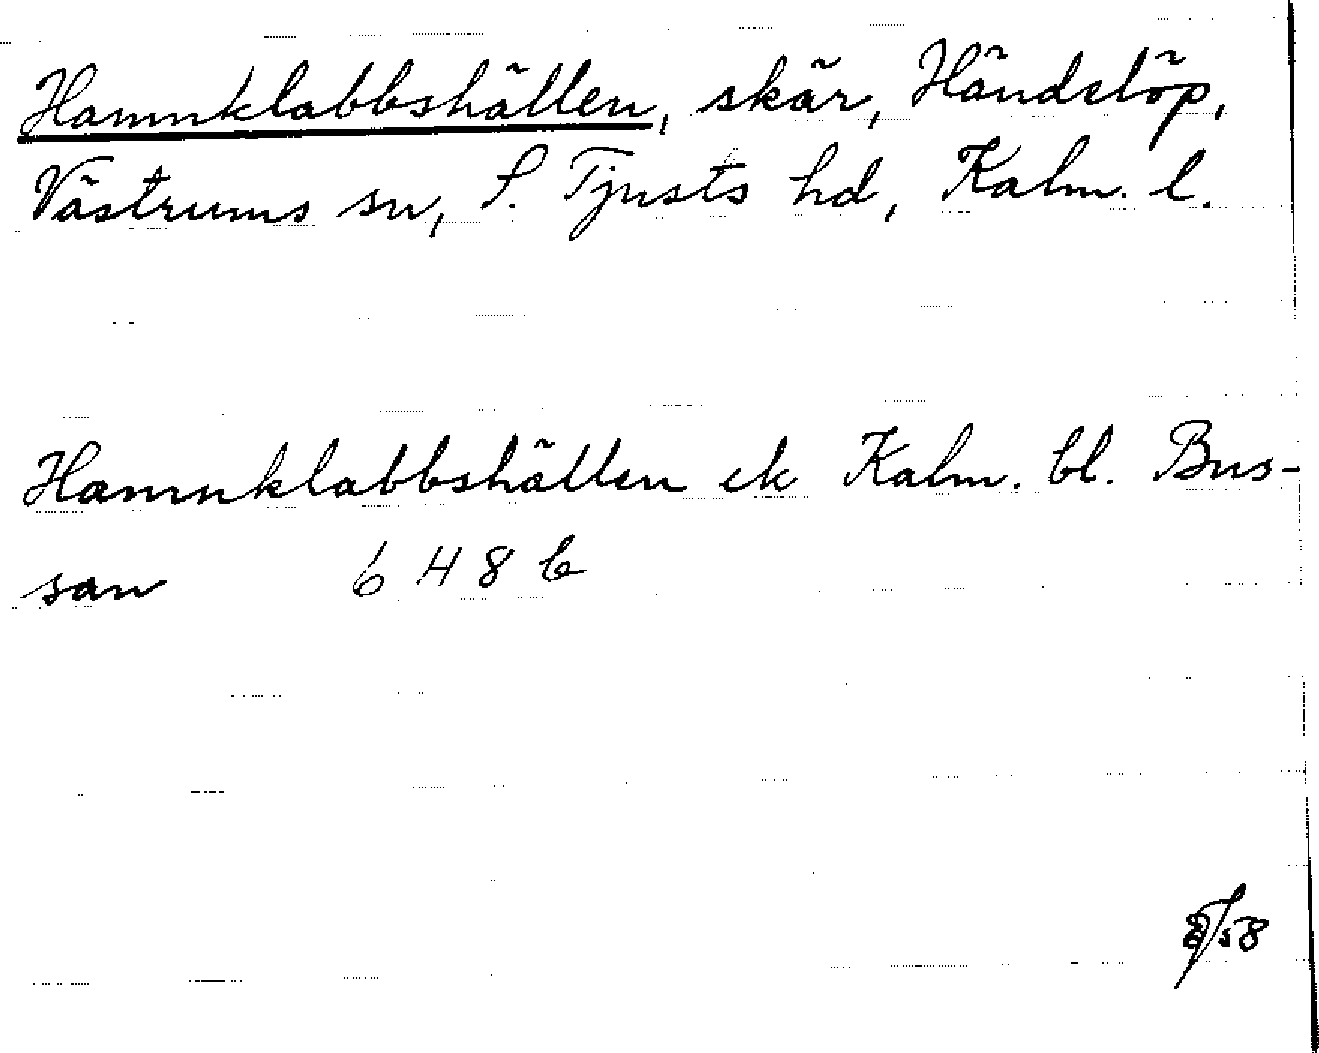 Hamnklabbshällen, skär, Händelöp,
Västrums sn, S. Tjusts hd, Kalm. l.
Hamnklabbshällen ek Kalm. bl. Bus-
san 6 H 8 b
58